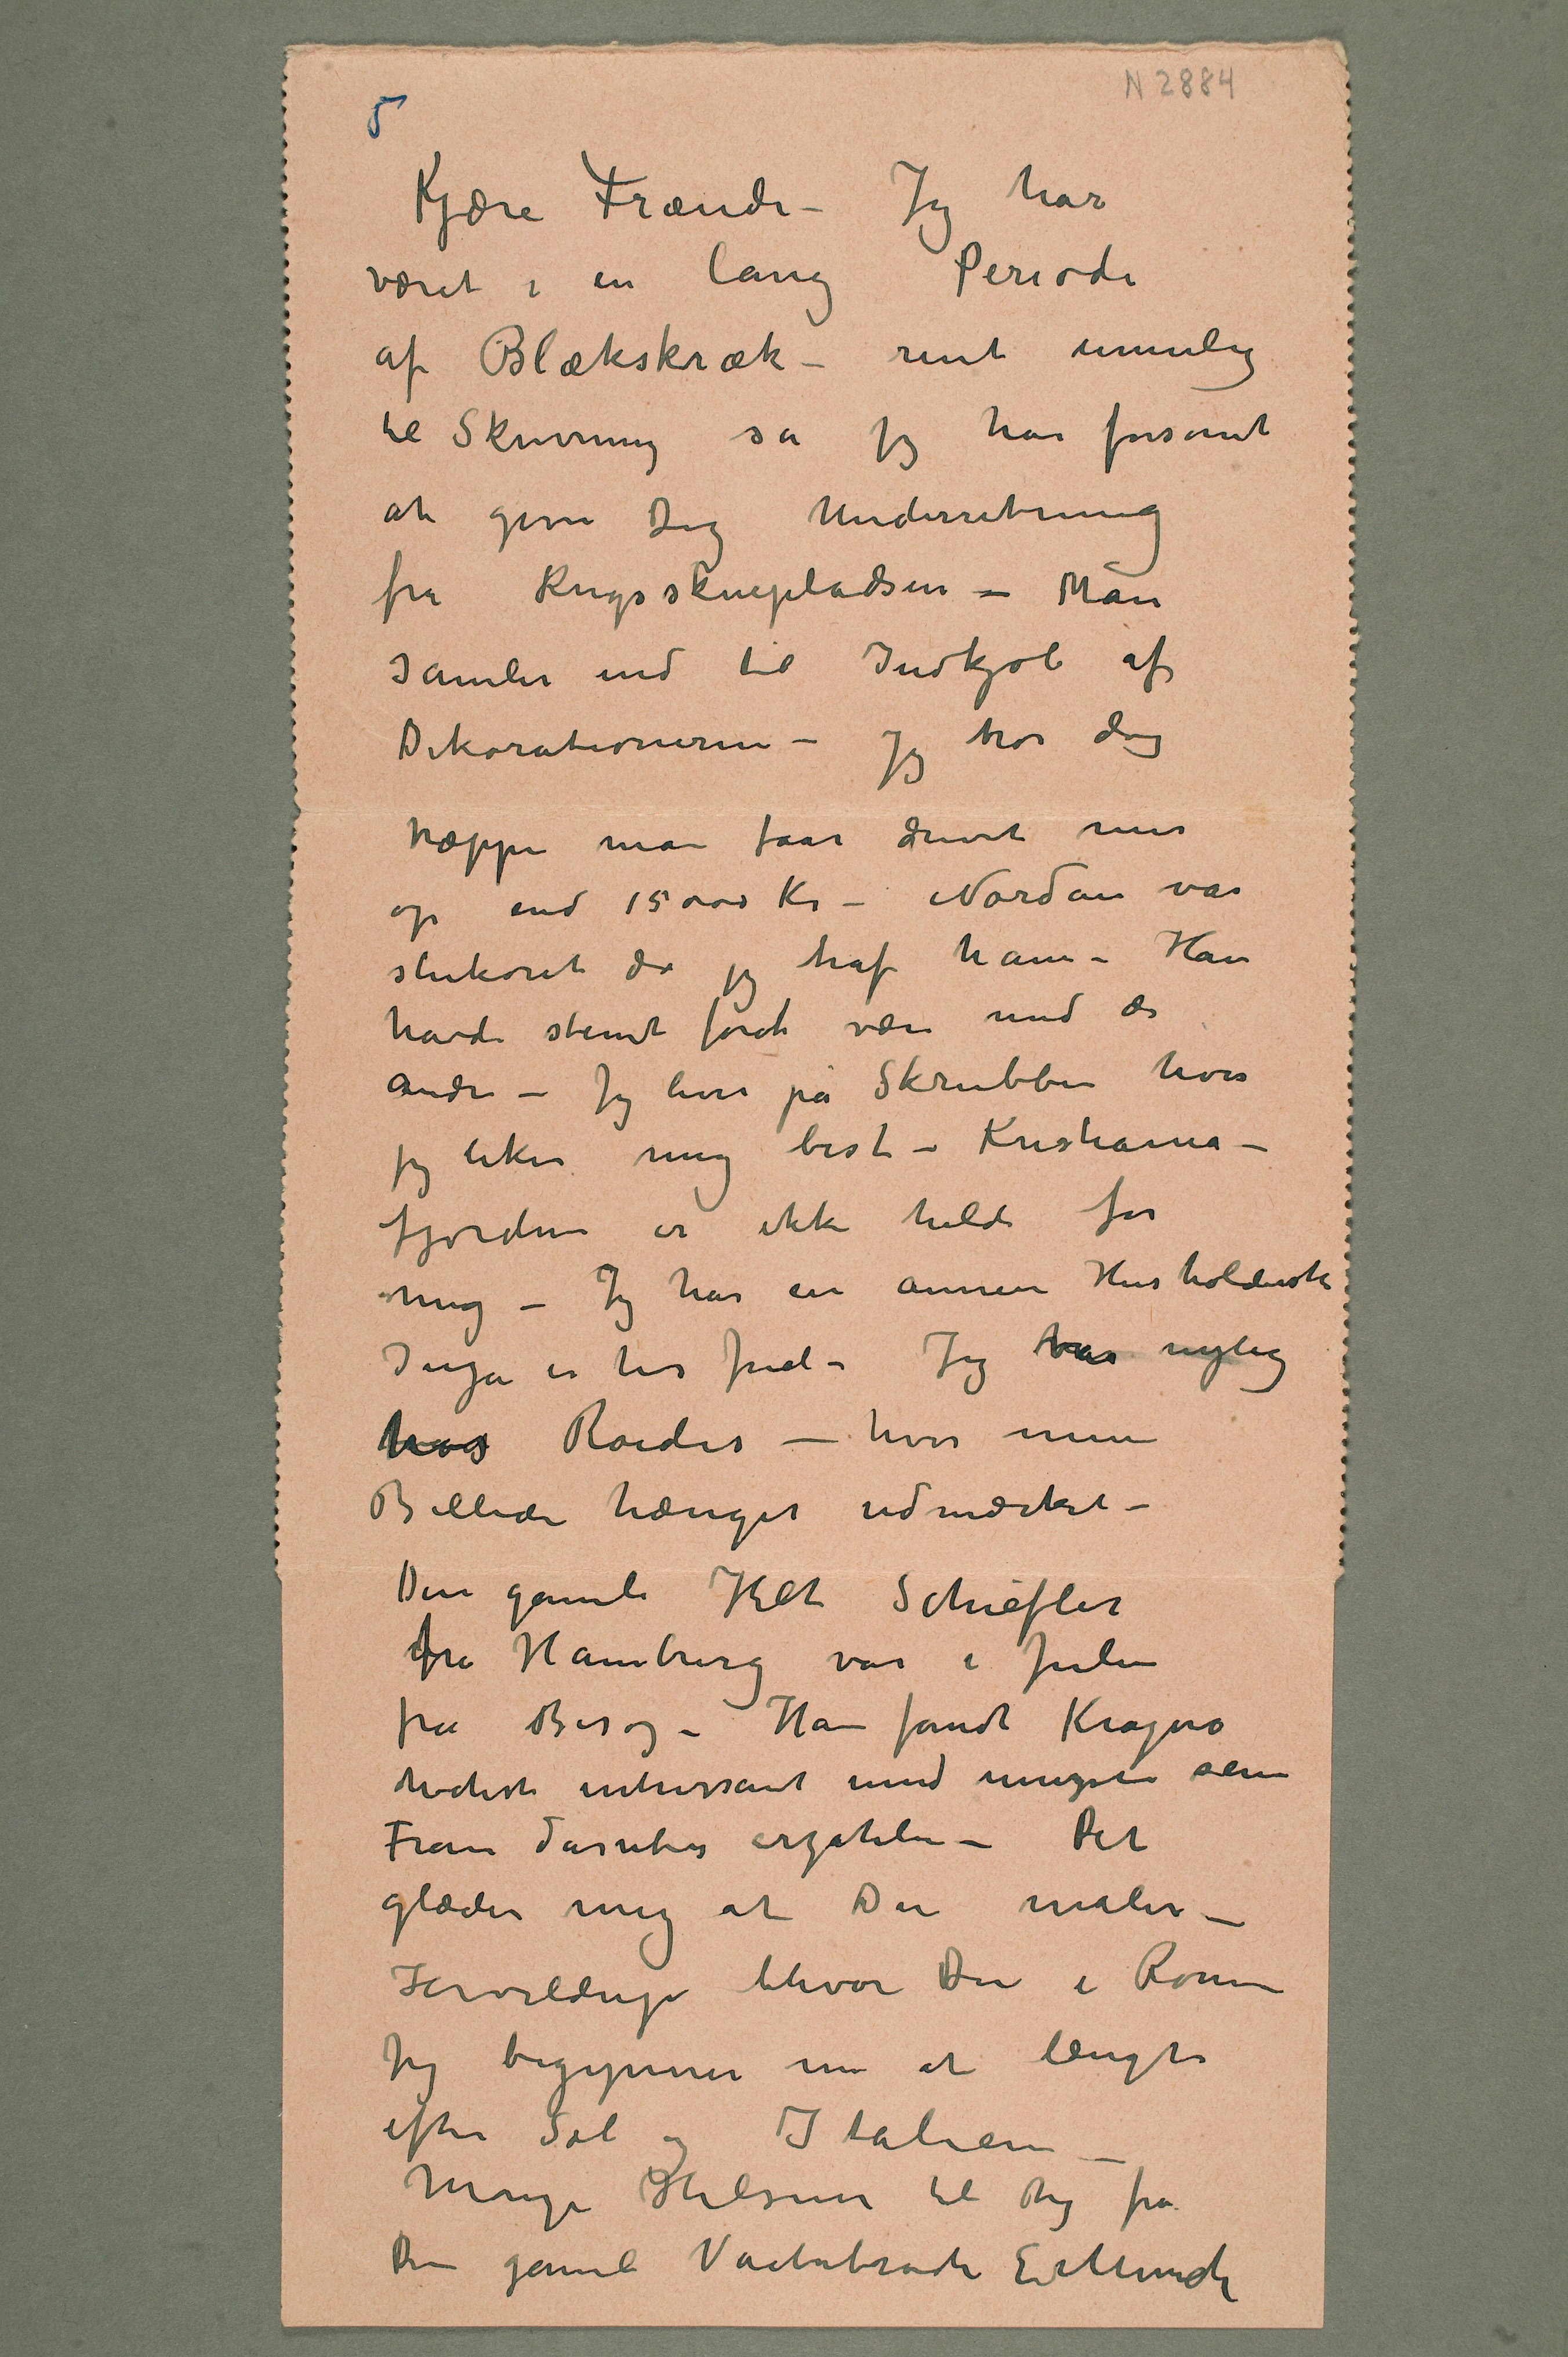 N 2884
5
Kjære Frænde – Jeg har
været i en lang Periode
af Blækskræk – rent umulig
til Skrivning så jeg har forsømt
at give Dig Underretning
fra Krigsskuepladsen – Man
samler ind til Indkjøb af
Dekorationerne – Jeg tror dog
næppe man faar drevet mer
op end 15000 Kr – Nordan var
slukøret da jeg traf ham – Han
havde stemt for at være med de
andre – Jeg lever på Skrubben hvor
jeg liker mig best – Kristiania–
fjorden er ikke heldi for
mig – Jeg har en annen Husholderske
Inga er her Jul – Jeg var nylig
hos Roedes – hvor mine
Billeder hænger udmærket –
Den gamle Helt Schiefler
fra Hamburg var i Julen
på Besøg – Han fandt Kragerø
høchst intressant und
Frau erzählen – Det
glæder mig at Du maler –
Forvildrup blev Du i Rom
Jeg begynner nu at længte
efter Sol og Italien –
Mange Hilsner til Dig fra
Din gamle Edv Munch